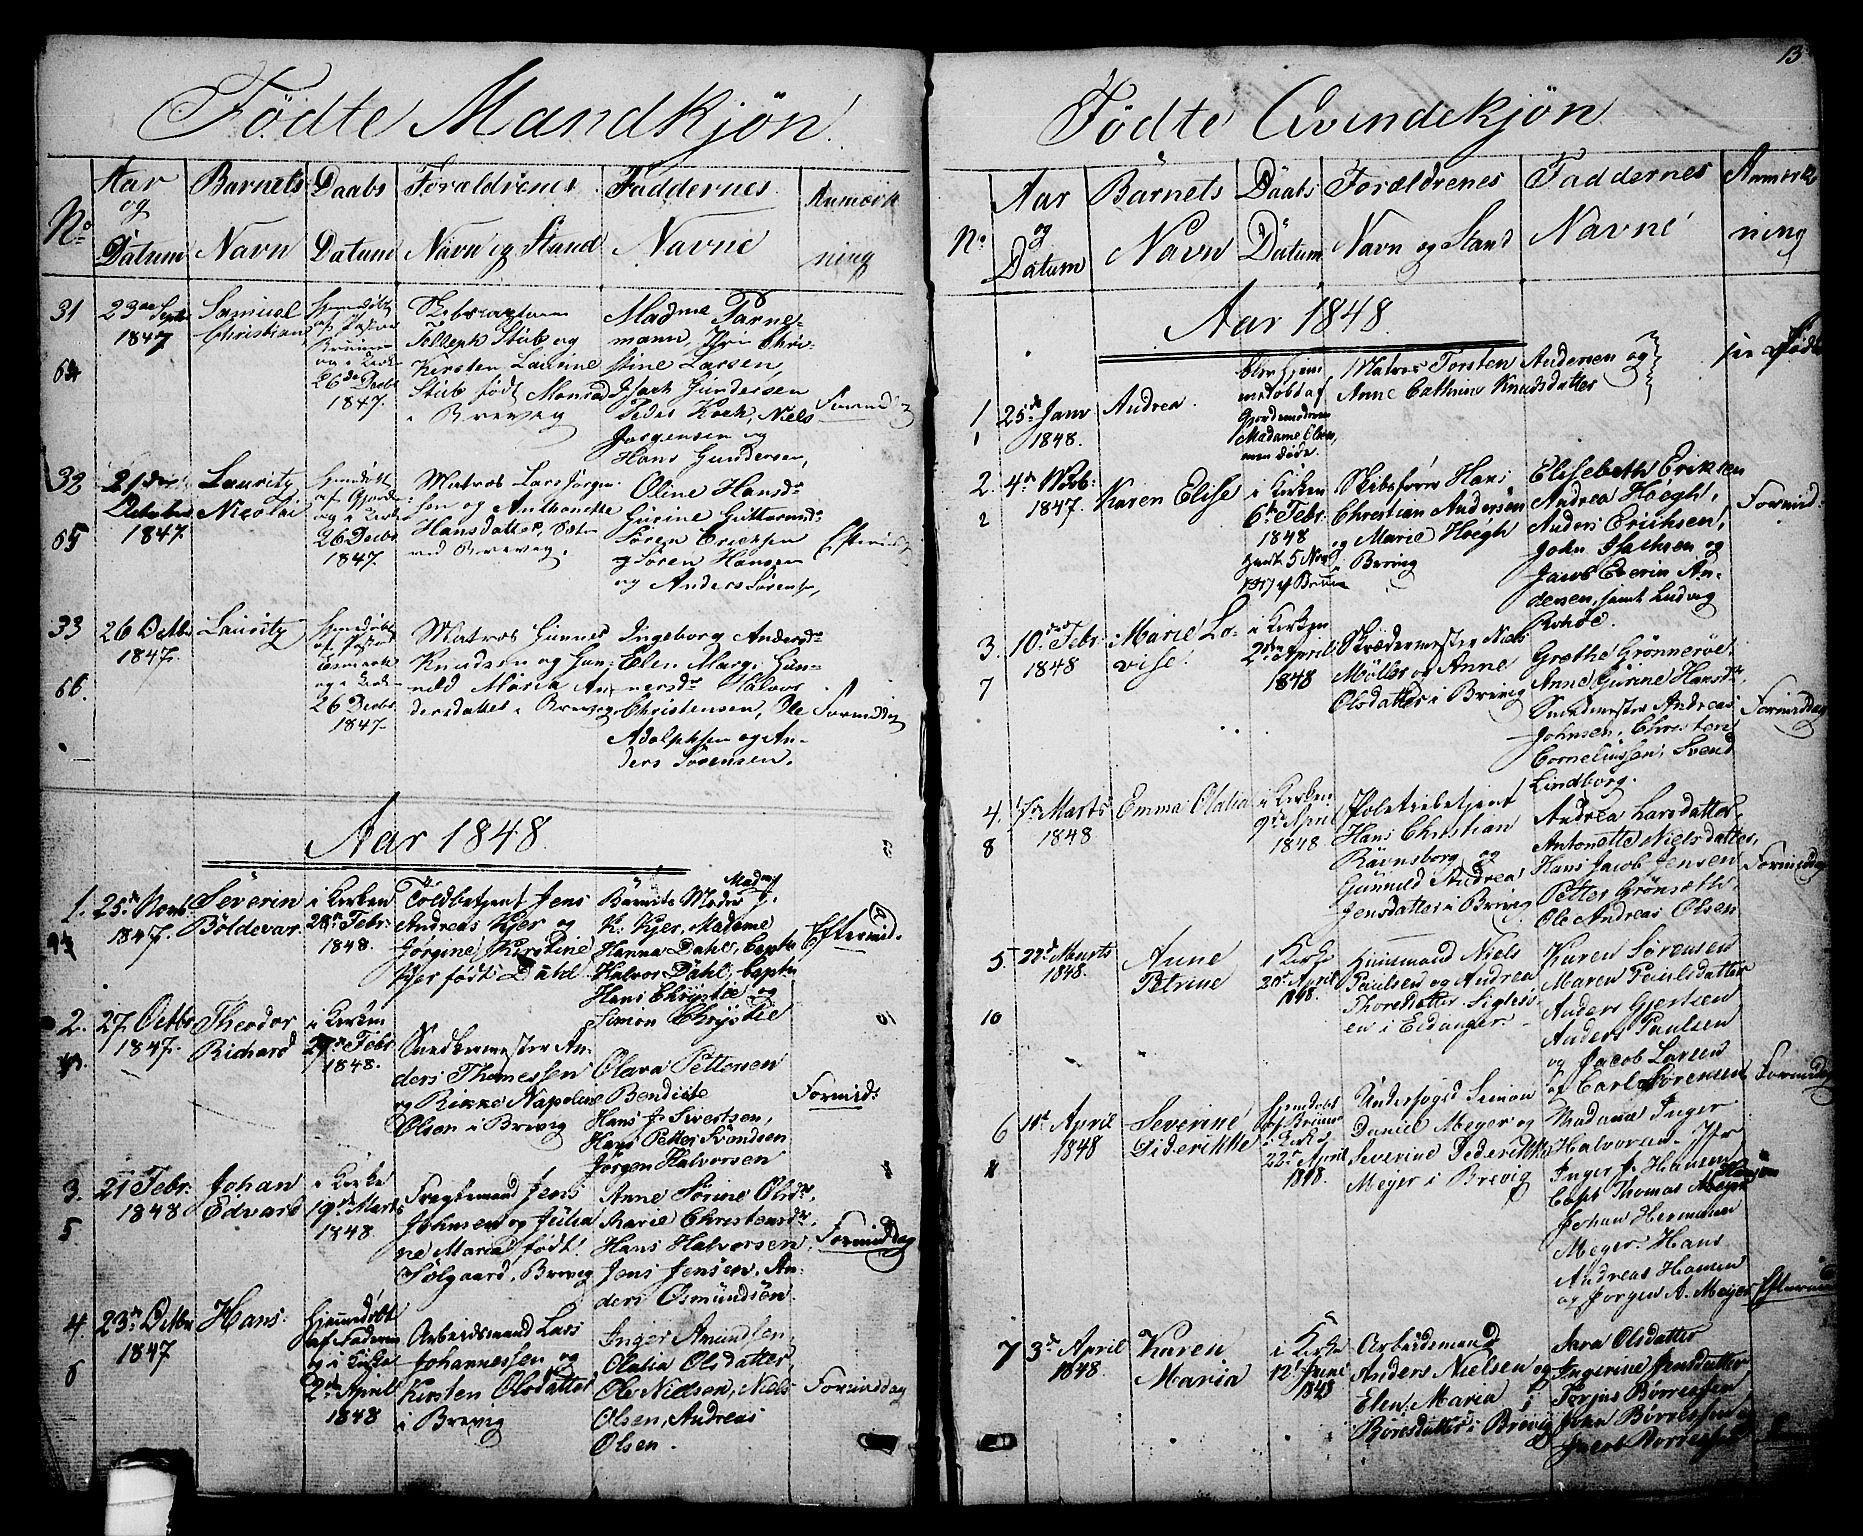 13
Fødte Mandkjøn.
No
Aar
og
Datum
Barnets
Navn
Daabs
Datum
Forældrenes
Navn og Stand
Faddernes
Navne
Anmærk
ning
31
64
23de Septr
1847
Samuel
Christian
Hjemdøbt
af Pastor
26de Decbr
1847.
Tolleph Stub og
Kirsten Laurine
Stub født Monrad
i Brevig
Madme Tarne-
mann, Jfr. Chri-
stine Larsen,
Isach Gundersen
Peder Koch, Niels
Jørgensen og
Hans Gundersen,
Formidd
32
65
21de
Octobr
1847
Lauritz
Nicolai
Hjemdøbt
og i Kirke
26 Decbr
1847.
Matros Lars Jørgen-
sen og Anthonette
Hansdatter,
ved Brevig.
Oline Hansdr
Gurine Guttormsdr
Søren Erichsen
og Søren Hansen
og Anders Sørens,
Eftermid
33
66.
26 Octbr
1847.
Lauritz
Hjemdøbt
af Pastor
og i Kirke
26 Decbr
1847.
Matros Gunner
Knudsen og Gun-
nild Maria An-
dersdatter i Brevig
Ingeborg Andersdr
Elen Marg. Gun-
nersdr Halvor
Christensen, Ole
Adolphsen og An-
ders Sørensen.
Formiddag
Aar 1848.
1.
25de Novb
1847.
Severin
Boldevar
i Kirken
20de Febr.
1848.
Toldbetjent Jens
Andreas Kjer og
Jørgine Kirstine
Kjer født Dahl
Barnets Moder Madm
K. Kjer, Madame
Hanna Dahl, Capt
Halvor Dahl, Capt
Hans Chrystie og
Simon Chrystie
Eftermid.
2.
27 Octbr
1847.
Theodor
Richard
i Kirken
27de Febr
1848.
Snedkermester An-
ders Thomessen
og Rikke Napoline
Olsen i Brevig
Olava Pettersen
Bendicte
Hans J. Sivertsen,
Hans Petter Svendsen
Jørgen Halvorsen
Formid:
3.
5
21 Febr.
1848
Johan
Edvard
i Kirke
19de Marts
1848
Fragtemand Jens
Johnsen og Julia
ne Maria født
Solgaard, Brevig
Anne Sørine Olsdr,
Marie Christensdr,
Hans Halvorsen,
Jens Jensen, An-
ders Osmundsen.
Formiddag
4
6
23de Octbr
1847
Hans.
Hjemmedøbt
af Faderen
og i Kirke
2de April
1848
Arbeidsmand Lars
Johannessen og
Kirsten Olsdatter
i Brevig
Inger Amundsen,
Olalia Olsdatter,
Ole Nielsen, Niels
Olsen, Andreas
Olsen.
Formiddag
Fødte Qvindekjøn
No
Aar
og
Datum
Barnets
Navn
Daabs
Datum
Forældrenes
Navn og Stand
Faddernes
Navne
Anmærk
ning
Aar 1848.
1
1
25de Janv
1848.
Andrea.
blev hjem
medøbt af
Gjordemoderen
Madame Olsen,
men døde.
Matros Torsten Andersen og
Anne Cathrine Knudsdatter
2.
2
4de Novb:
1847.
Karen Elise
i Kirken
6te Febr.
1848
Skibsfører Hans
Christian Andersen
og Marie Høegh
i Brevig
Elisebeth Eriksen
Andrea Høegh,
Anders Erichsen,
John Isachsen og
Jacob Everin An-
dersen, samt Ludvig
Rohde.
Formid:
3.
7
10de Febr.
1848
Marie Lo-
vise.
i Kirken
2den April
1848
Skrædermester Niels
Møller og Anne
Olsdatter i Brevig
Grethe Grønnerød,
Anne Gurine Hansdr,
Smedmester Andreas
Johnsen, Christen
Corneliussen, Svend
Lindborg.
Formiddag
4.
8
7de Marts
1848
Emma Olalia
i Kirken
9de April
1848
Politibetjent
Hans Christian
Ravnsborg og
Gunnild Andrea
Jensdatter i Brevig
Andrea Larsdatter,
Antonette Nielsdatter,
Hans Jacob Jensen
Petter Grønseth
Ole Andreas Olsen
Formiddag
5.
10
22de Marts
1848.
Anne
Petrine
i Kirke
20de April
1848.
Huusmand Niels
Paulsen og Andrea
Thorsdatter
i Eidanger.
Karen Sørensen
Maren Paulsdatter
Anders Gjertsen
Anders Paulsen
og Jacob Larsen
af Carl Sørensen
Formiddag
6
11te April
1848
Severine
Diderikke
Hjemdøbt
i Kirke
22de April
1848.
Underfoged Simon
Daniel Meyer og
Severine Dederikke
Meyer i Brevig
Madame Inger
Halvorsen. Jfr
Inger J. Hansen
Capt Thomas Meyer
Johan Hermann
Meyer. Hans
Andreas Hansen
og Jørgen A. Meyer
Eftermid
7
3de April
1848.
Karen
Maria
i Kirke
12te Juni
1848
Arbeidsmand
Anders Nielsen og
Elen Maria
Boresdatter i Brevig
Sara Olsdatter
Ingerine Jensdatter
Torjus Børresen,
John Børresen og
Jacob Børresen